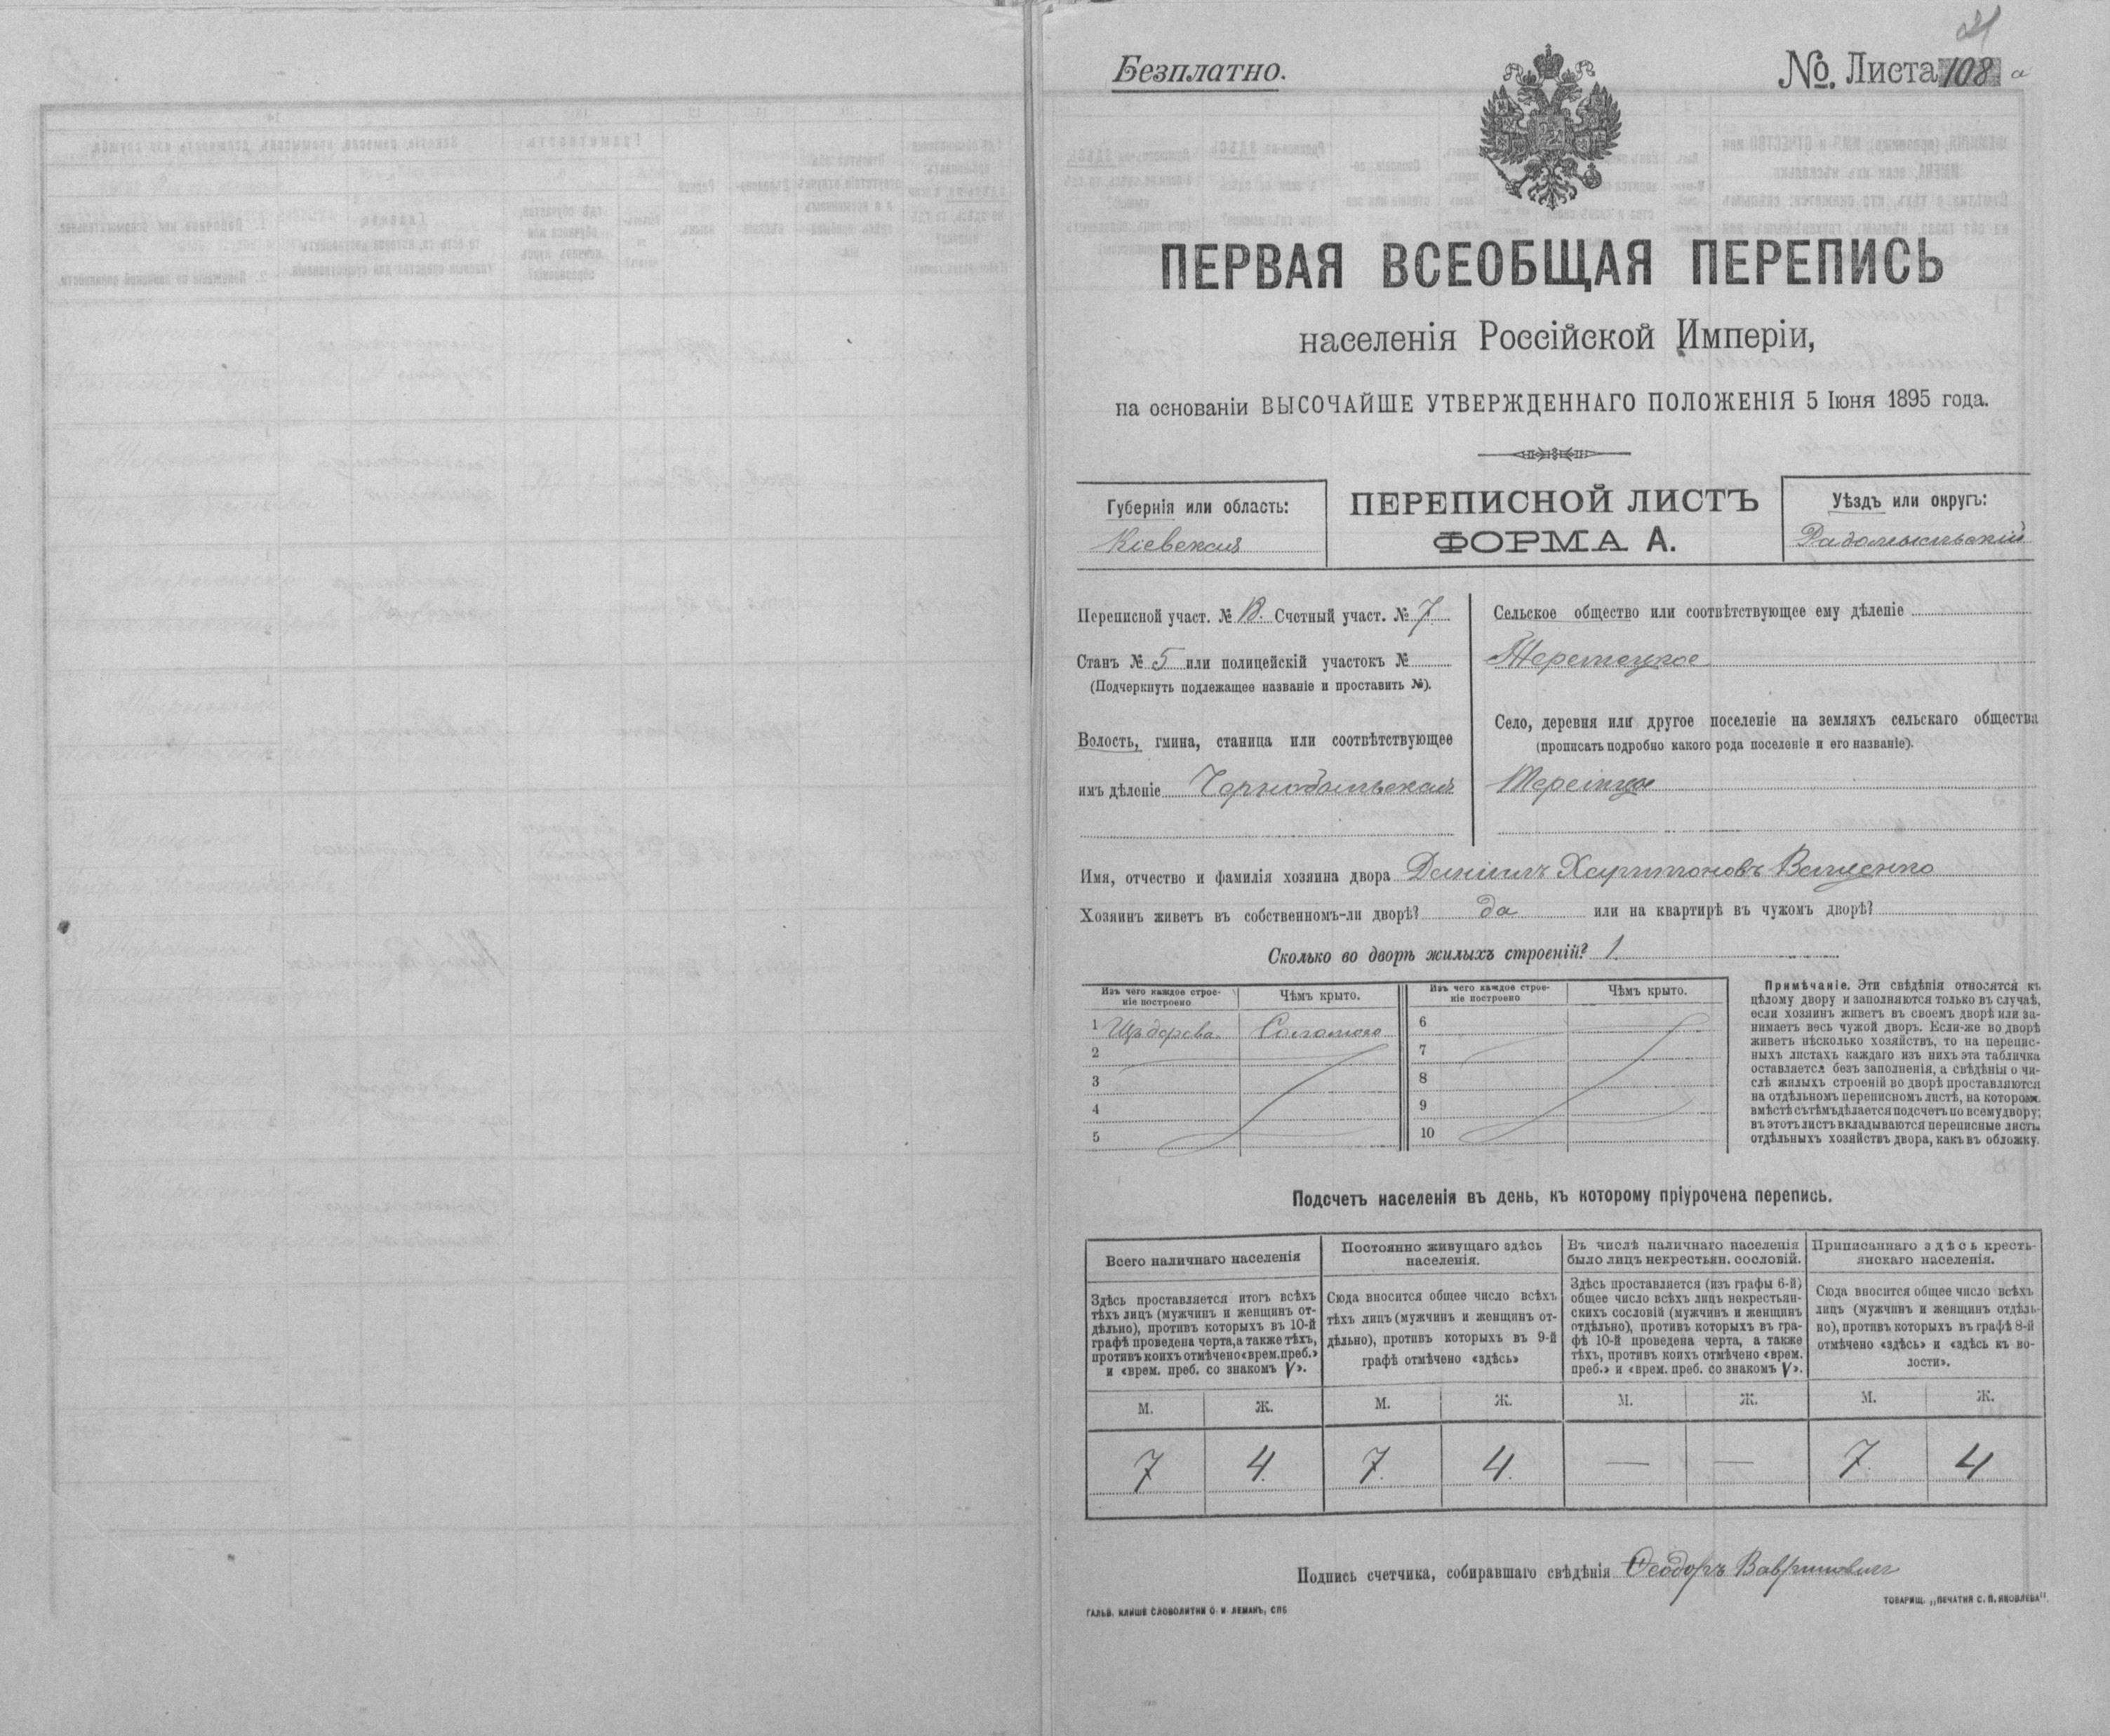 Безплатно.
№ Листа 108 а
ПЕРВАЯ ВСЕОБЩАЯ ПЕРЕПИСЬ
населенія Россійской Имперіи,
на основаніи ВЫСОЧАЙШЕ УТВЕРЖДЕННАГО ПОЛОЖЕНІЯ 5 Іюня 1895 года.
Губернія или область:
Кіевская
ПЕРЕПИСНОЙ ЛИСТЪ
ФОРМА А.
Уѣздъ или округъ:
Радомысльскій
Переписной участ. № 13. Счетный участ. № 7
Станъ № 5 или полицейскій участокъ №
(Подчеркнуть подлежащее названіе и проставить №).
Волость, гмина, станица или соотвѣтствующее
имъ дѣленіе Чернобыльская
Сельское общество или соотвѣтствующее ему дѣленіе
Теремецкое
Село, деревня или другое поселеніе на земляхъ сельскаго общества
(прописать подробно какого рода поселеніе и его названіе).
Имя, отчество и фамилія хозяина двора Даніилъ Харитоновъ Ващенко
Хозяинъ живетъ въ собственномъ-ли дворѣ? да или на квартирѣ въ чужомъ дворѣ?
Сколько во дворѣ жилыхъ строеній? 1.
Изъ чего каждое строе-
ніе построено
Чѣмъ крыто.
Изъ чего каждое строе-
ніе построено
Чѣмъ крыто.
1 Изъ дерева. Соломою
2
3
4
5
6
7
8
9
10
Примѣчаніе. Эти свѣдѣнія относятся къ
цѣлому двору и заполняются только въ случаѣ,
если хозяинъ живетъ въ своемъ дворѣ или за-
нимаетъ весь чужой дворъ. Если-же во дворѣ
живетъ нѣсколько хозяйствъ, то на перепис-
ныхъ листахъ каждаго изъ нихъ эта табличка
оставляется безъ заполненія, а свѣдѣнія о чи-
слѣ жилыхъ строеній во дворѣ проставляются
на отдѣльномъ переписномъ листѣ, на которомъ
вмѣстѣ съ тѣмъ дѣлается подсчетъ по всему двору;
въ этотъ листъ вкладываются переписные листы
отдѣльныхъ хозяйствъ двора, какъ въ обложку.
Подсчетъ населенія въ день, къ которому пріурочена перепись.
Всего наличнаго населенія
Здѣсь проставляется итогъ всѣхъ
тѣхъ лицъ (мужчинъ и женщинъ от-
дѣльно), противъ которыхъ въ 10-й
графѣ проведена черта, а также тѣхъ,
противъ коихъ отмѣчено «врем. преб.»
и «врем. преб. со знакомъ V».
Постоянно живущаго здѣсь
населенія.
Сюда вносится общее число всѣхъ
тѣхъ лицъ (мужчинъ и женщинъ от-
дѣльно), противъ которыхъ въ 9-й
графѣ отмѣчено «здѣсь»
Въ числѣ наличнаго населенія
было лицъ некрестьян. сословій.
Здѣсь проставляется (изъ графы 6-й)
общее число всѣхъ лицъ некрестьян-
скихъ сословій (мужчинъ и женщинъ
отдѣльно), противъ которыхъ въ гра-
фѣ 10-й проведена черта, а также
тѣхъ, противъ коихъ отмѣчено «врем.
преб.» и «врем. преб. со знакомъ V».
Приписаннаго здѣсь кресть-
янскаго населенія.
Сюда вносится общее число всѣхъ
лицъ (мужчинъ и женщинъ отдѣль-
но), противъ которыхъ въ графѣ 8-й
отмѣчено «здѣсь» и «здѣсь къ во-
лости».
М. Ж. М. Ж. М. Ж. М. Ж.
7 4. 7. 4. — — 7. 4
Подпись счетчика, собиравшаго свѣдѣнія Ѳеодоръ
ГАЛЬВ. КЛИШЕ СЛОВОЛИТНИ О. И. ЛЕМАНЪ, СПБ
ТОВАРИЩ. „ПЕЧАТНЯ С. П. ЯКОВЛЕВА".